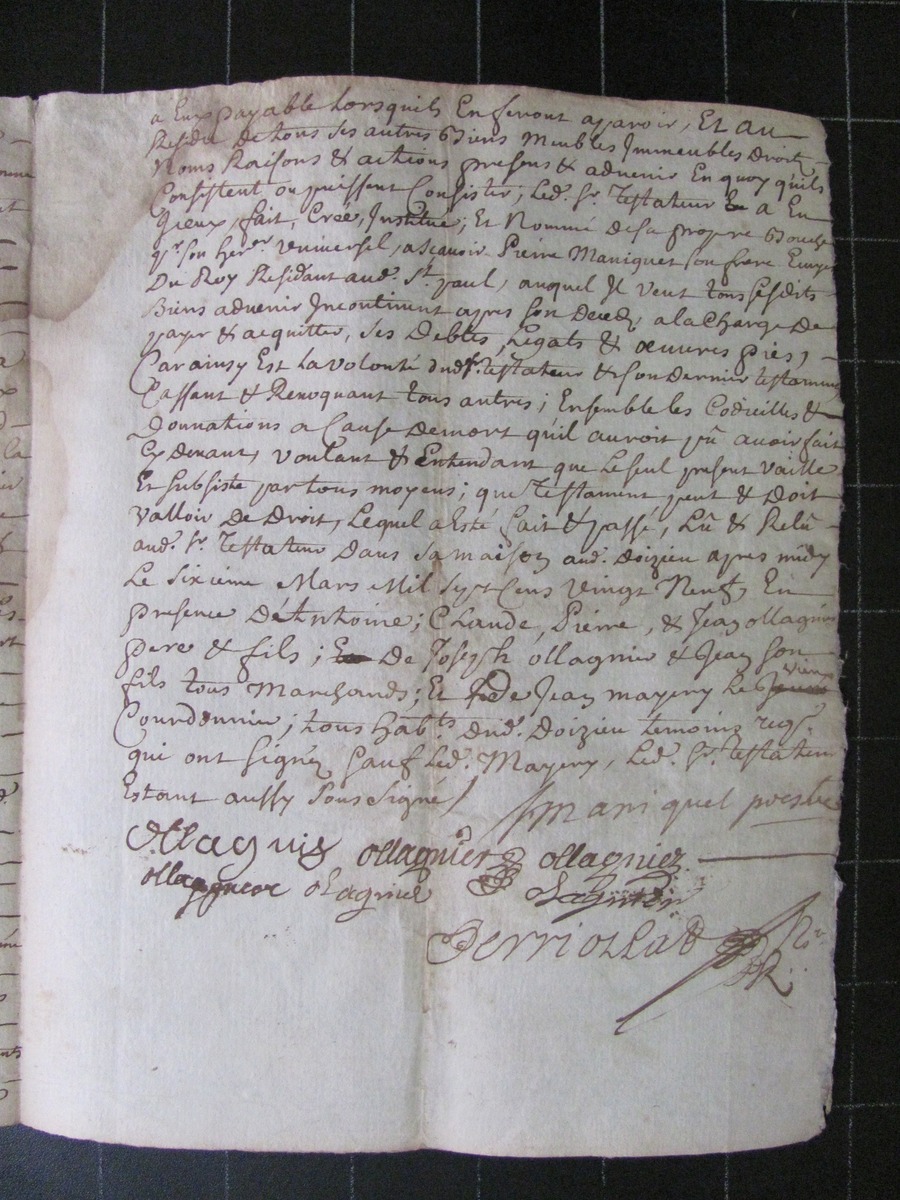 a Eux payable Lorsquils En feront aparoir, Et au
Residu De tous ses autres Biens Meubles Immeubles Droits
Noms Raisons & actions presens & advenir En quoy qu'ils
Consistent ou puissent Consister, Led. Sr. Testateur a En
Yceux, fait, Créé, Institué, Et Nommé de sa propre Bouche
pr. son herer Universel, ascavoir Pierre Maniquet son frere Ecuyer
Du Roy Residant aud. St. paul, auquel Il veut tous sesdits
Biens advenir Incontinent apres son Deceds a la Charge De
payer & acquitter, ses Debtes, Legats & œuvres pies,
Car ainsy Est la volonté dud. Sr. Testateur & son Dernier testament
Cassant & Revoquant tous autres; Ensemble les Codicilles &
Donnations a Cause de mort qu'il auroit pû avoir fait
Cy devant, voulant & Entendant que le seul present vaille
Et subsiste par tous moyens; que Testament peut & Doit
valloir De Droit, Lequel a Esté fait & passé, Lû & Relû
aud. Sr. Testateur Dans sa maison aud. Doizieu apres midy
Le sixième Mars Mil sept Cens vingt Neuf, En
presence D'Antoine; Claude, Pierre, & Jean ollagnier
pere & fils; De Joseph ollagnier & Jean son
fils tous Marchands; Et De Jean mayery le vieux
Courdonnier; tous habts. dud. Doizieu temoins reqs.
qui ont signéz sauf led. Mayery, Led. Sr. Testateur
Estant aussy sous signé /
maniquet
Ollagnie ollagnier ollagniez
olagnier